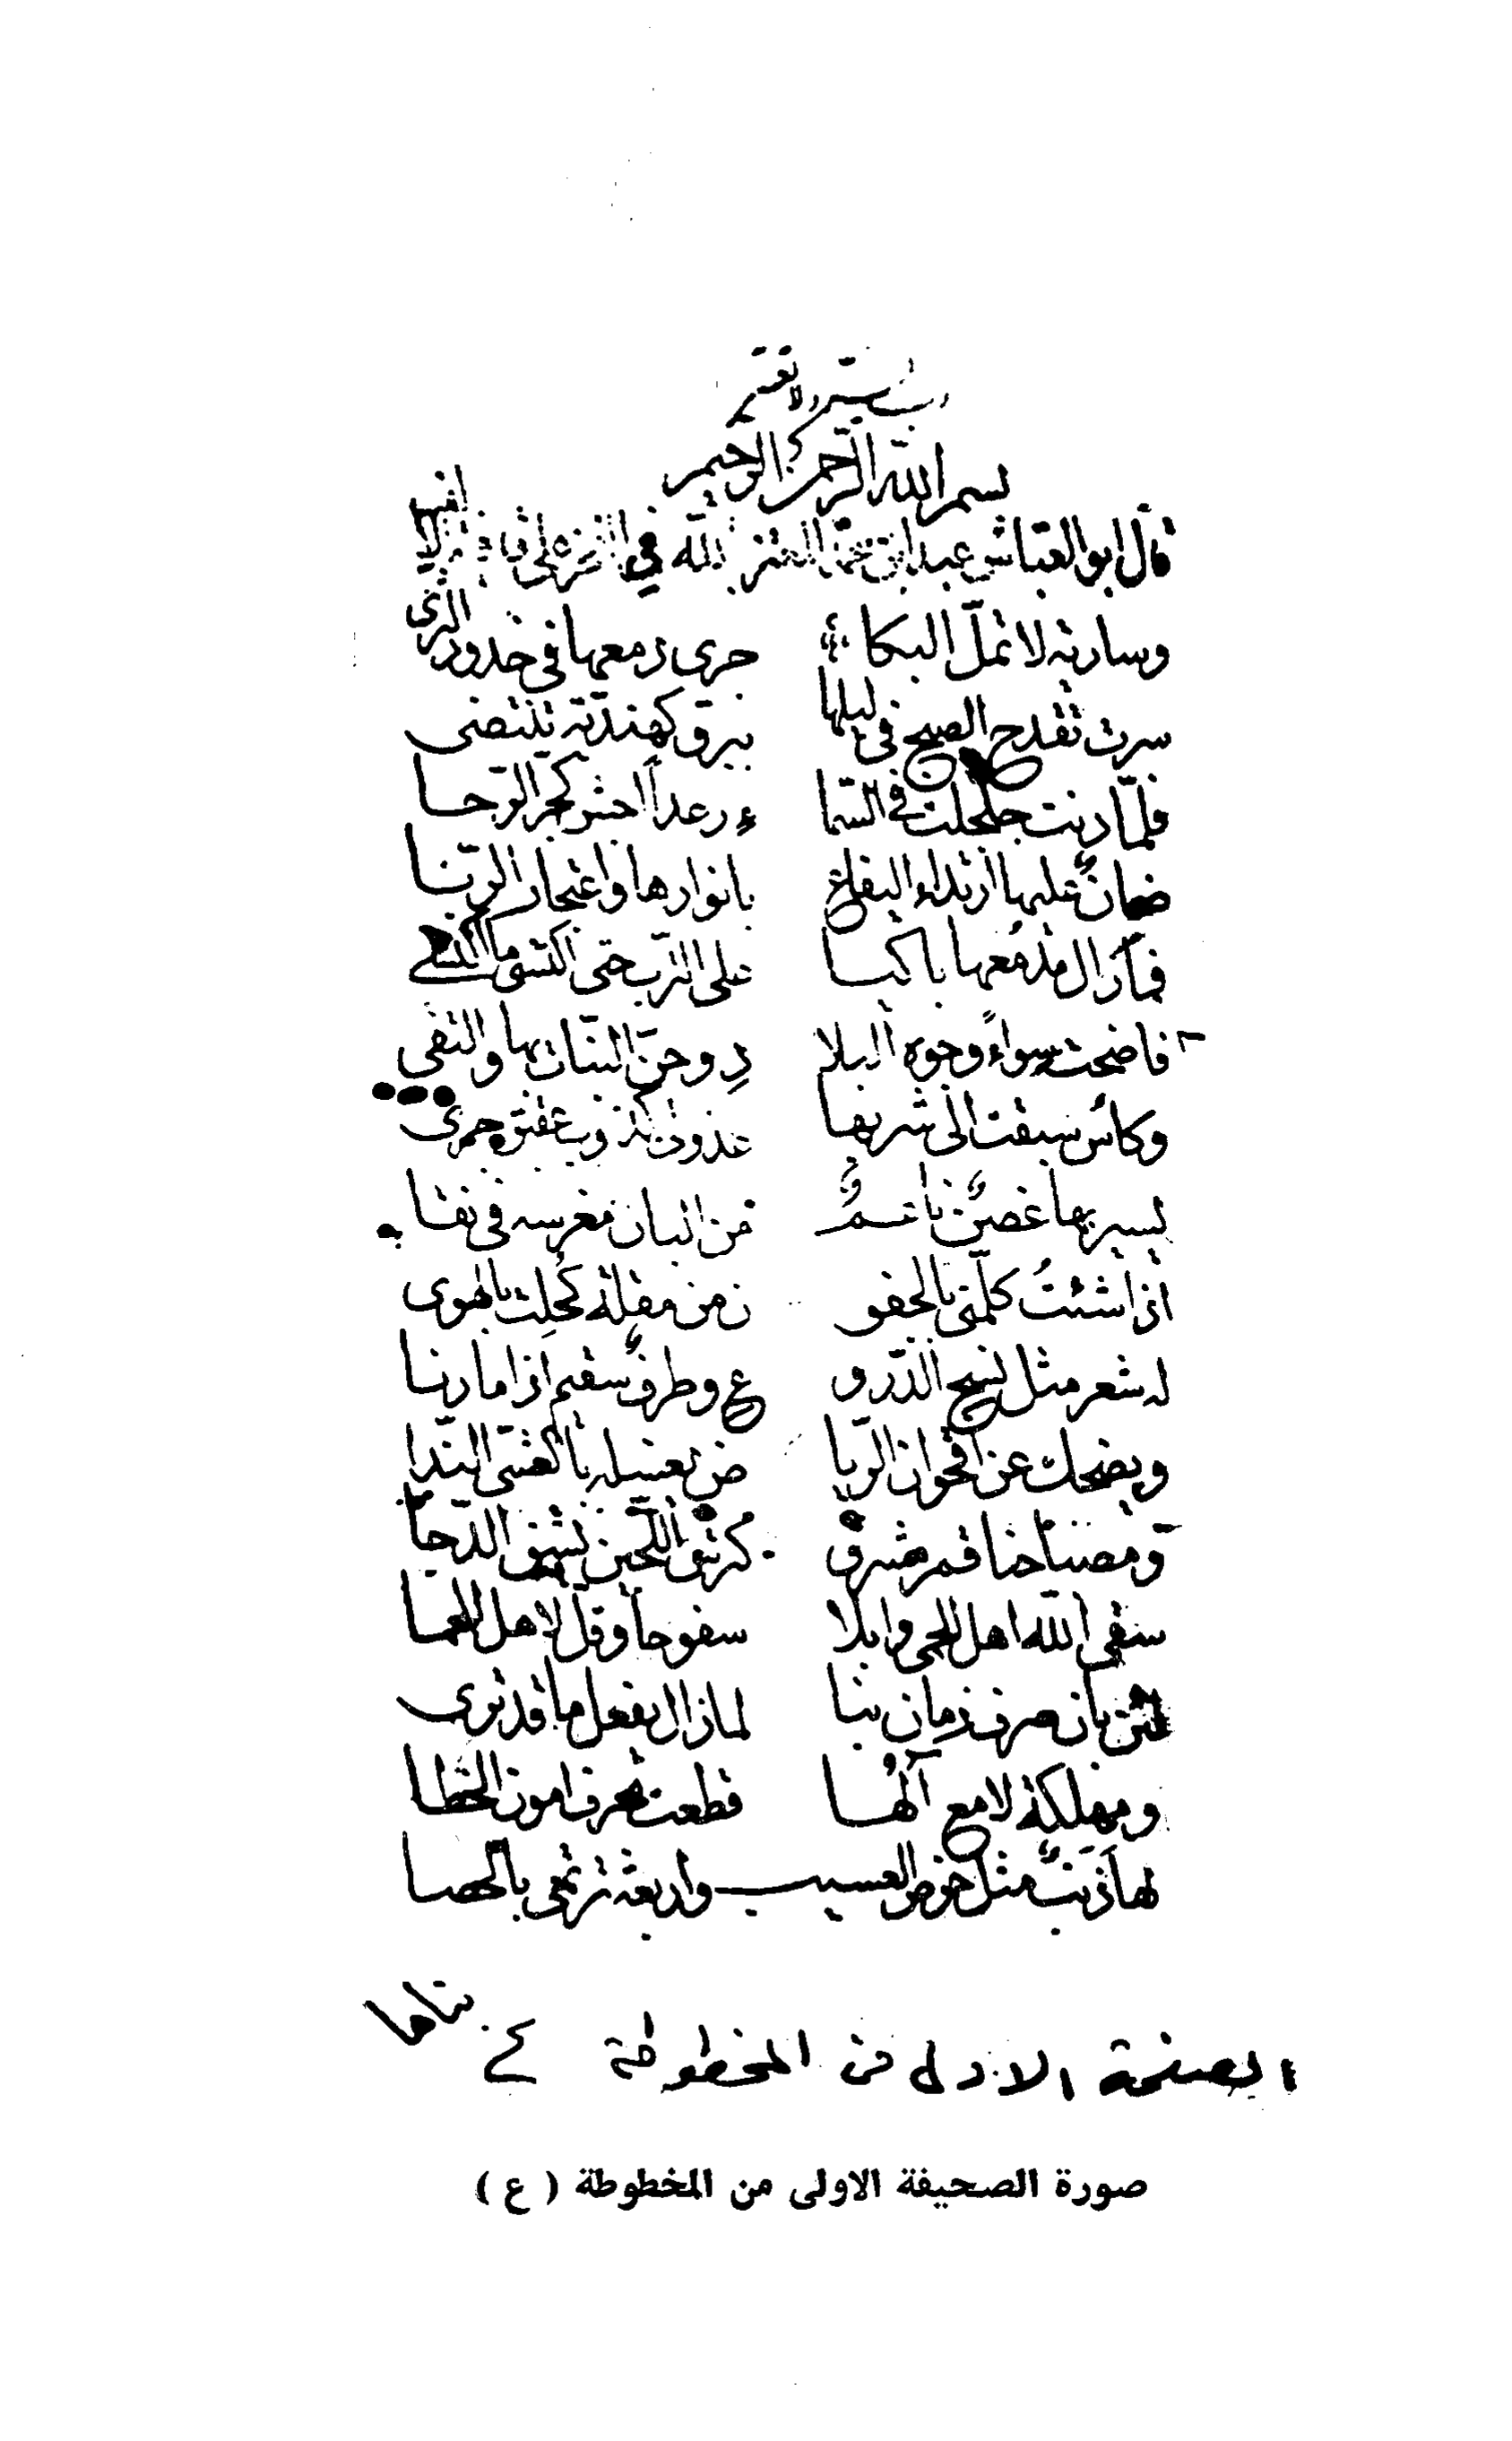 رب يسر ولا تعسر
بسم الله الرحمن الرحيم
قال ابو العباس عبد الله بن المعتز بالله في الفخر على قافية الالف
وسارية لا تمل البكا جرى دمعها في خدود الثرى
سرت تقدح الصبح في ليلها ببرق كهندية تنتضى
فلما دنت جلجلت في السما ء رعداً اجش كجر الرحا
ضمانٌ عليها ارتداء اليفاع بانوارها واعتجار الربا
فما زال مدمعها باكيا على الترب حتى اكتسى ما اكتسى
فاضحت سواءً وجوه البلا دِ وجن النبات بها والتقى
وكأس سبقت الى شربها عذولى كذوب عقيق جرى
يسير بها غصنٌ ناعمٌ من البان مغرسه في نقا
اذا شئتُ كلمني بالجفو ن من مقلة كُحِلت بالهوى
له شعر مثل نسج الدرو ع وطرفٌ سقيم اذا ما رنا
ويضحك عن اقحوان الريا ض يغسله بالعشي الندا
ومصباحنا قمر مشرق كترس اللجين يشق الدجا
سقى الله اهل الحمى وابلا سفوحا وقل لاهل الحما
لئن بان صرف زمان بنا لما زال يفعل ما قد ترى
ومهلكة لامع آلها قطعت بحرف امون الخطا
لها ذَنَبٌ مثل خوص العسيب واربعة ترتمى بالحصا
الصفحة الاولى من المخطوطة ع
صورة الصحيفة الاولى من المخطوطة ( ع )